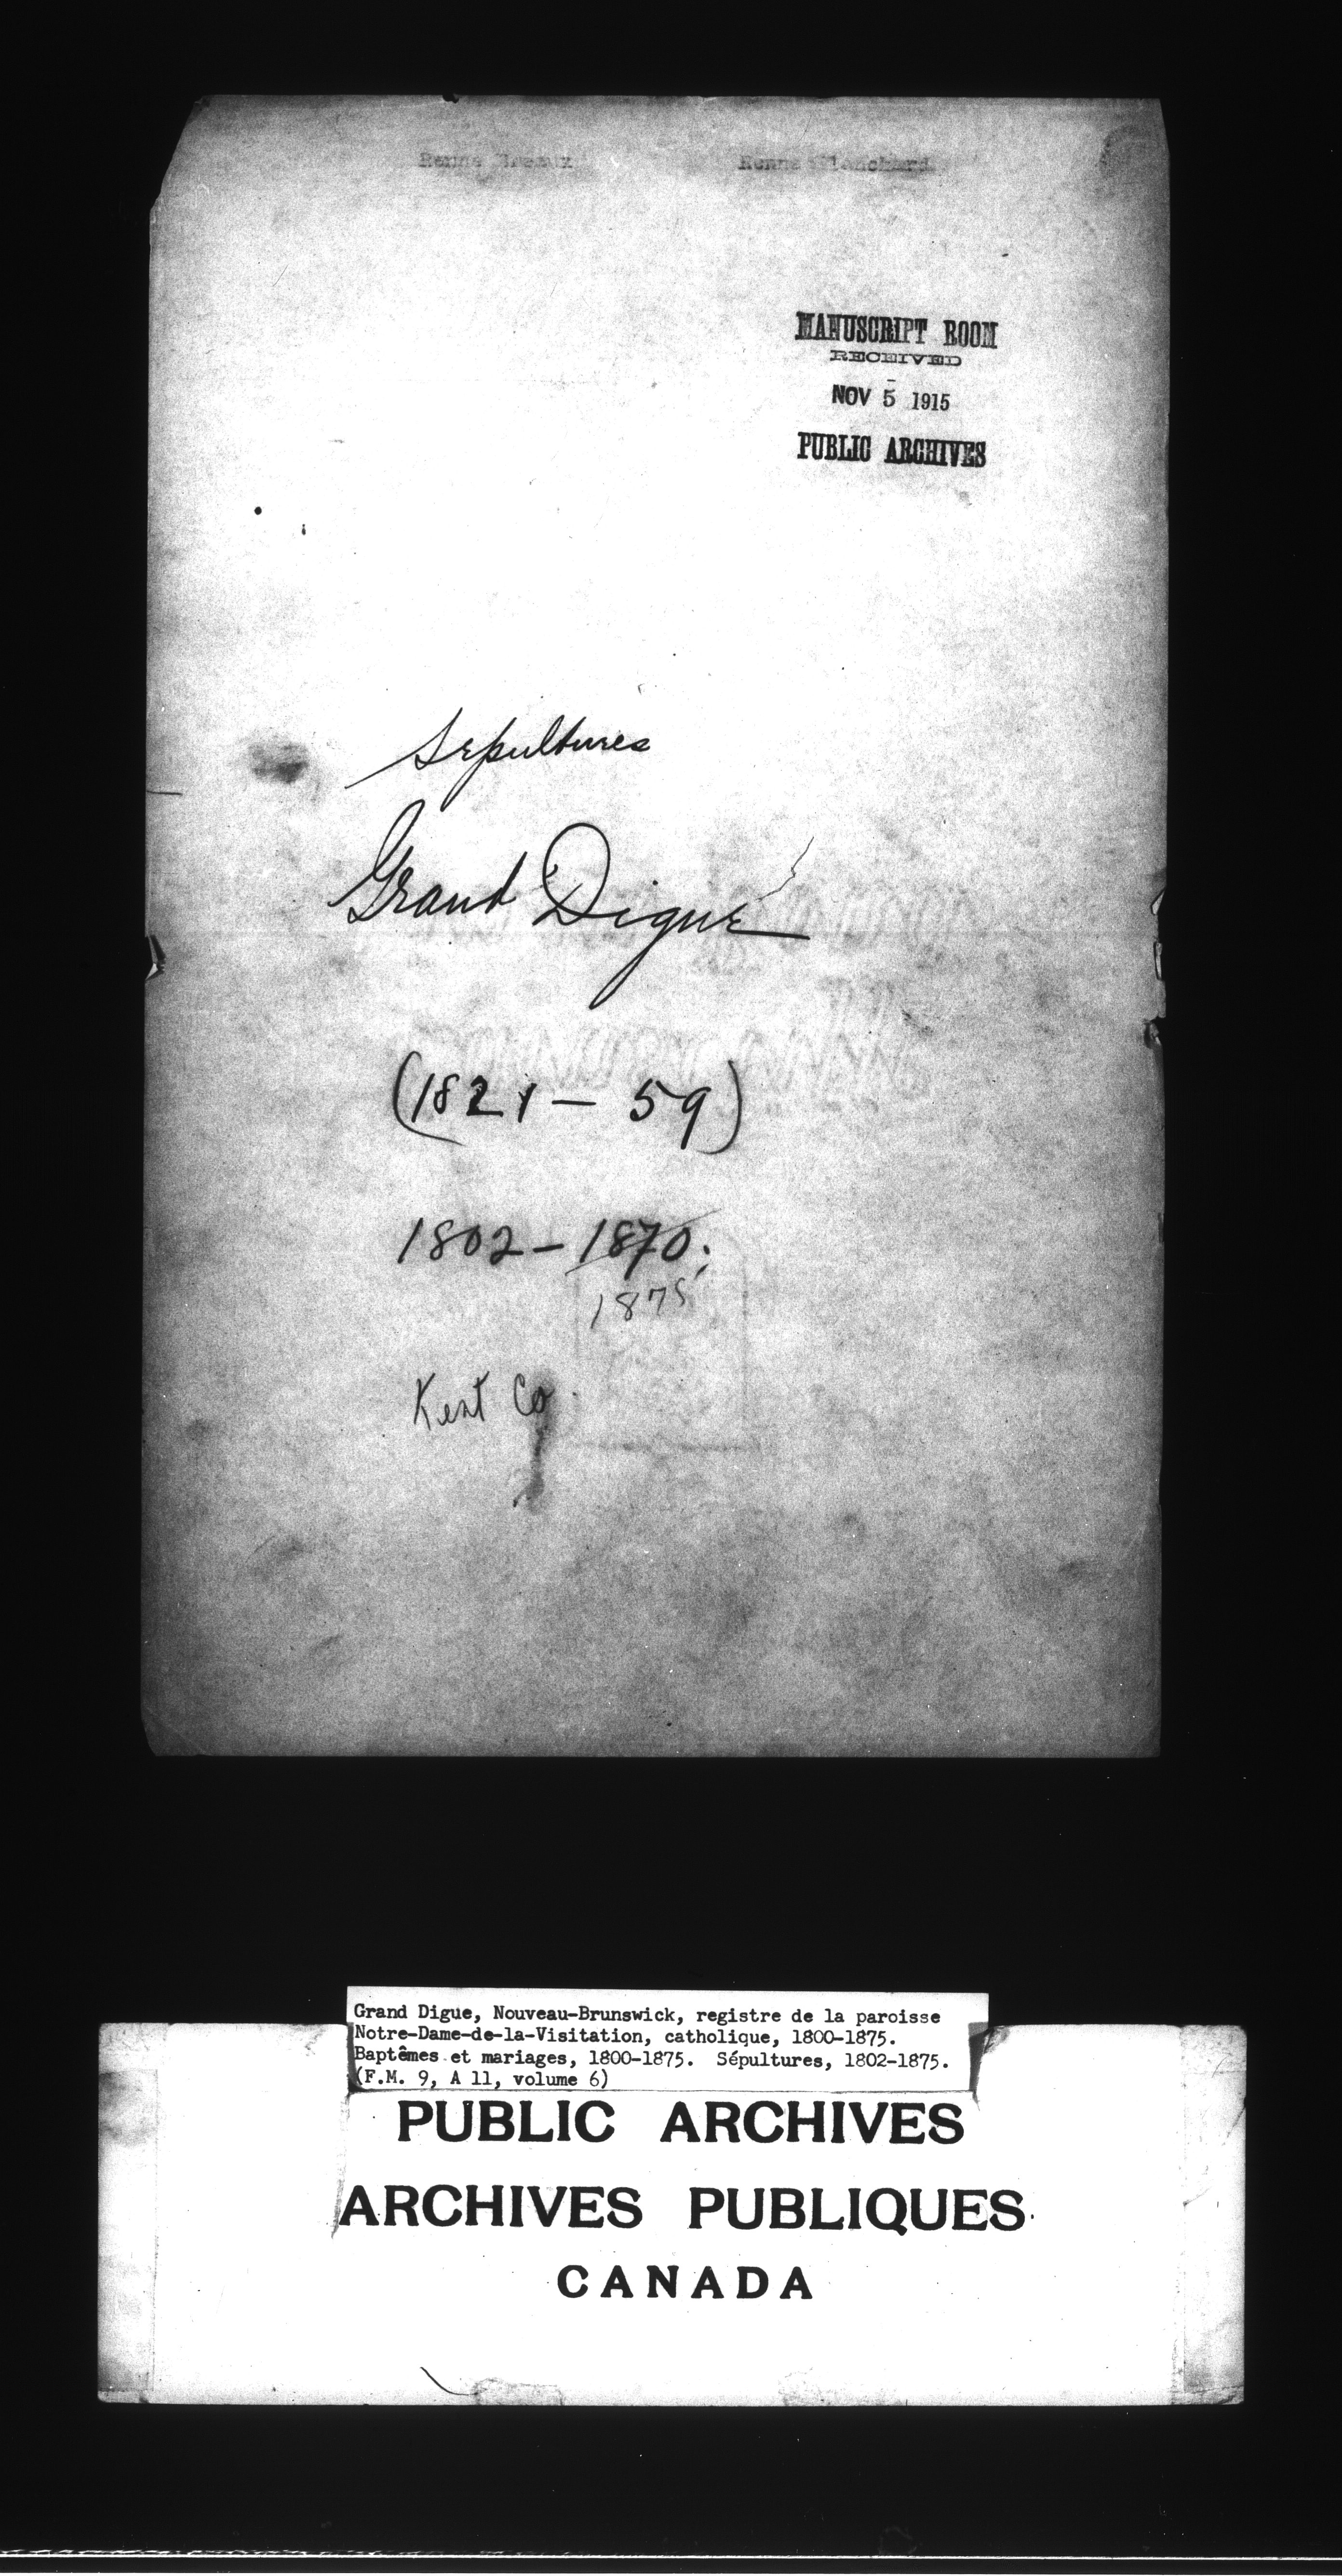 MANUSCRIPT ROOM
RECEIVED
NOV 5 1915
PUBLIC ARCHIVES
Sépultures
Grand Digue
(1821 – 59)
1802 – 1870;
1875
Kent Co.
Grand Digue, Nouveau-Brunswick, registre de la paroisse
Notre-Dame-de-la-Visitation, catholique, 1800-1875.
Baptêmes et mariages, 1800-1875. Sépultures, 1802-1875.
(F.M. 9, A 11, volume 6)
PUBLIC ARCHIVES
ARCHIVES PUBLIQUES
CANADA